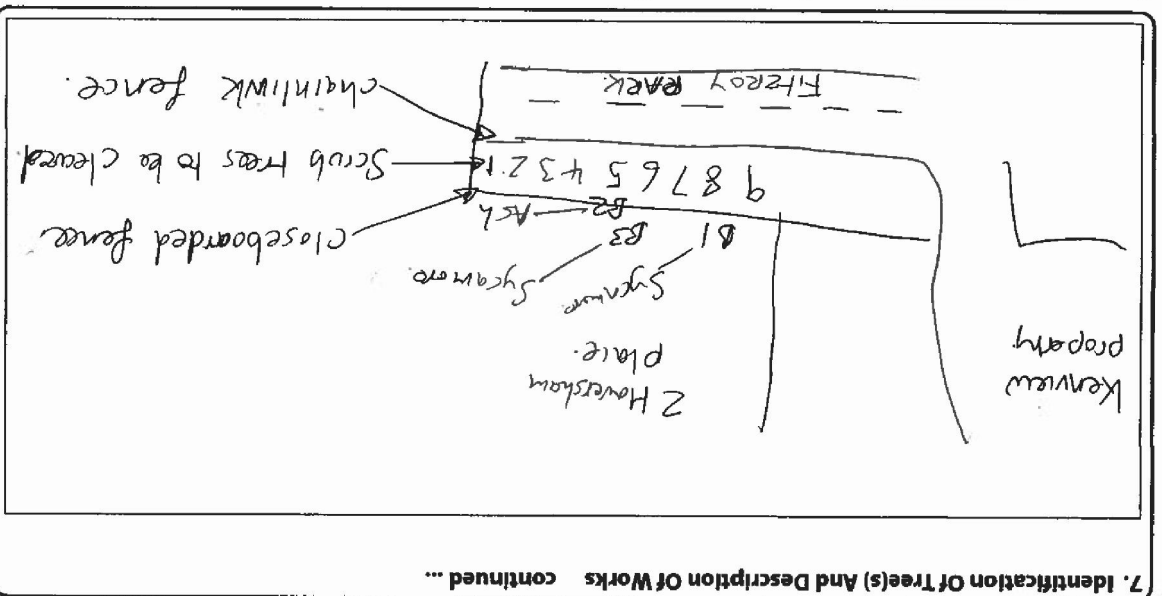 7. Identification Of Tree(s) And Description Of Works continued ...
Kenview
property
2 Haversham
place.
Sycamore
Sycamore.
B1 B3
B2 Ash
Closeboarded fence
9 8 7 6 5 4 3 2 1
Scrub trees to be cleared
FITZROY PARK
chainlink fence.